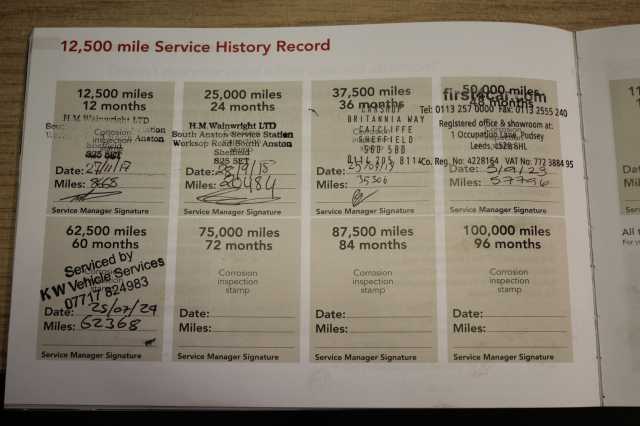 12,500 mile Service History Record
12,500 miles
12 months
H.M. Wainwright LTD
Station
Anston
Corrosion
inspection
Sheffield
S25 5ET
Date: 27/11/17
Miles: 8668
Service Manager Signature
25,000 miles
24 months
H.M. Wainwright LTD
South Anston Service Station
Worksop Road South Anston
Sheffield
S25 5ET
Date: 28/9/18
Miles: 20484
Service Manager Signature
37,500 miles
36 months
CARSHOP
BRITANNIA WAY
CATCLIFFE
SHEFFIELD
S60 5BD
0114 205 8114
Date:
Miles: 35506
Service Manager Signature
50,000 miles
48 months
first4car.com
Tel: 0113 257 0000 Fax: 0113 2555 240
Registered office & showroom at:
1 Occupation Lane, Pudsey
Leeds, LS28 8HL
Co. Reg. No: 4228164 VAT No. 772 3884 95
Date: 5/9/23
Miles: 57796
Service Manager Signature
62,500 miles
60 months
Serviced by
KW Vehicle Services
07717 824983
Corrosion
inspection
stamp
Date: 25/07/24
Miles: 62368
Service Manager Signature
75,000 miles
72 months
Corrosion
inspection
stamp
Date:
Miles:
Service Manager Signature
87,500 miles
84 months
Corrosion
inspection
stamp
Date:
Miles:
Service Manager Signature
100,000 miles
96 months
Corrosion
inspection
stamp
Date:
Miles:
Service Manager Signature
11
Da
Mi
Se
All t
For y